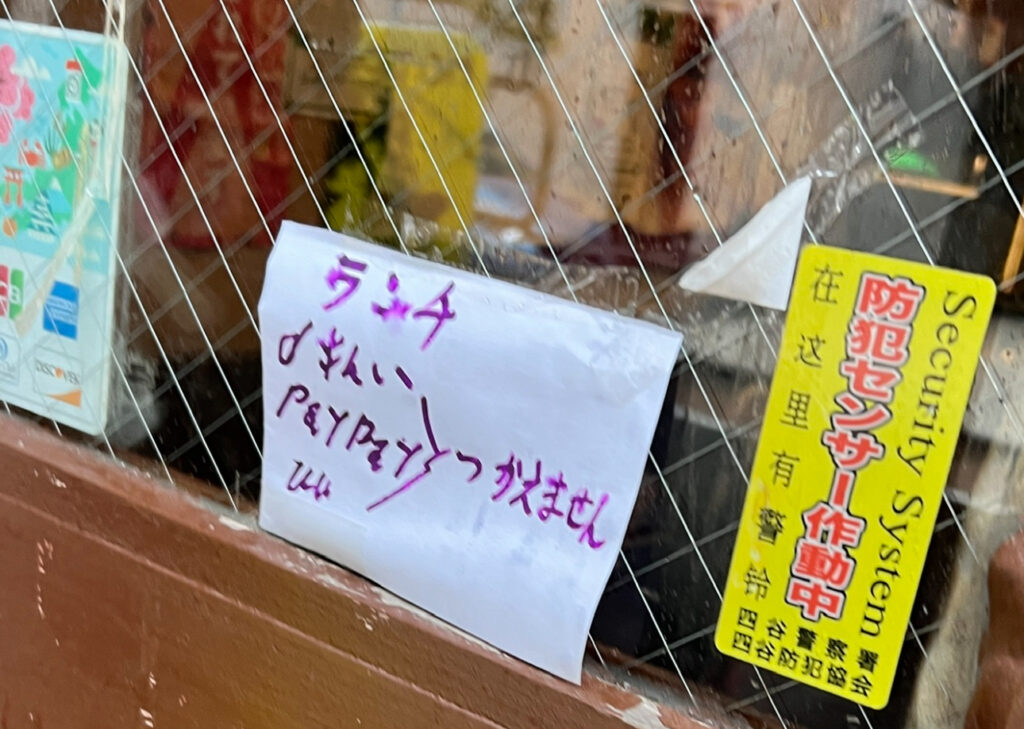 ランチ
d払い
PayPay
つかえません
Security System
防犯センサー作動中
在这里有警铃
四谷警察署
四谷防犯協会
DISCOVER